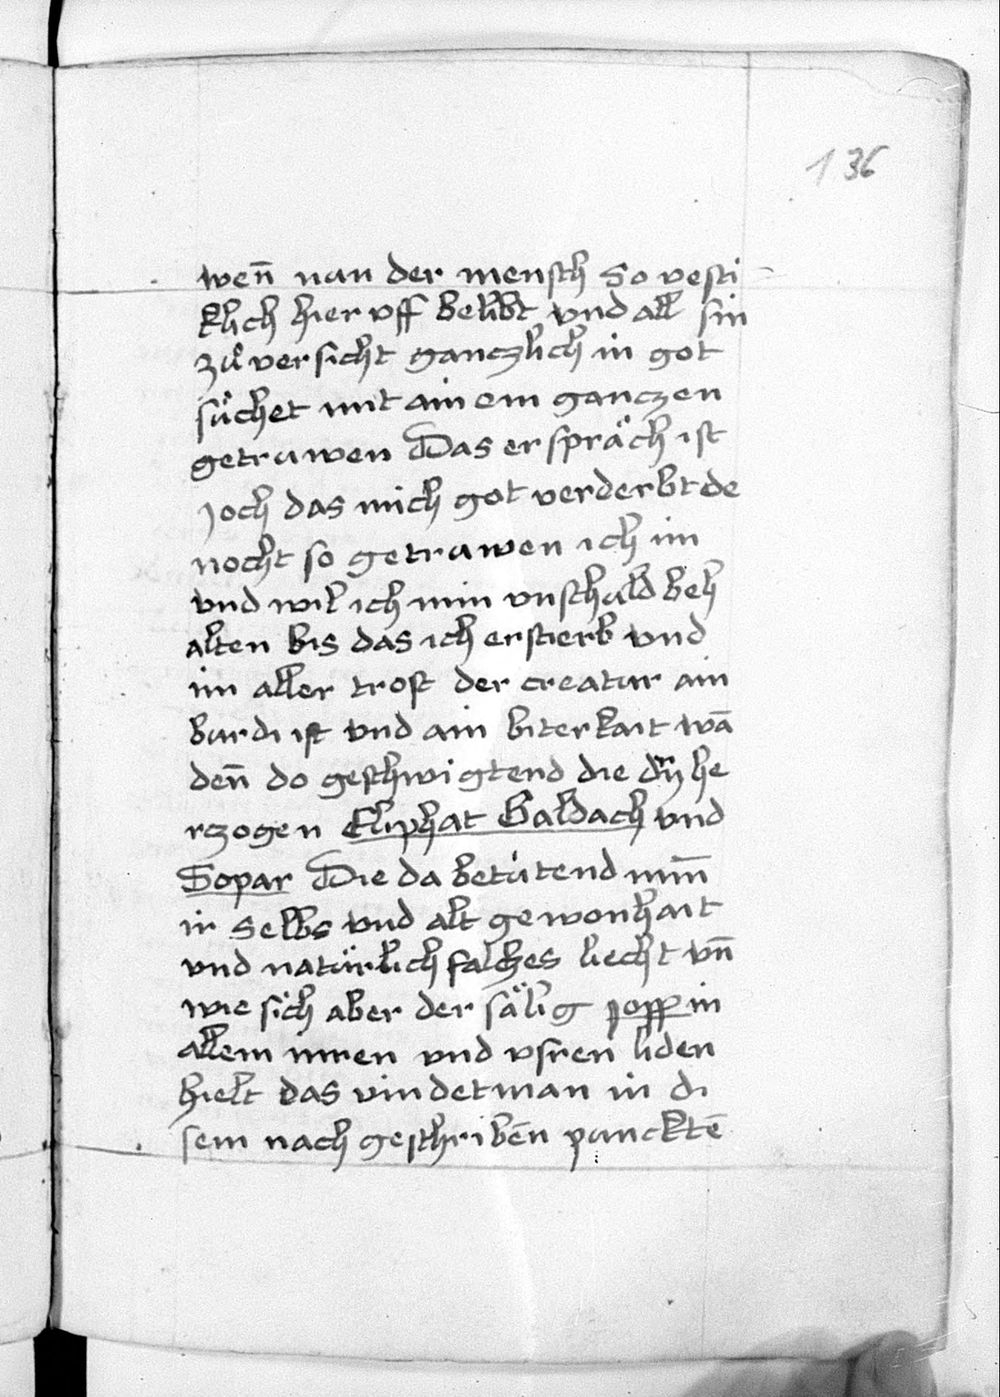 136
wen̄ nun der mensch So vesti-
klich hier vff belibt vnd all sin
zůversicht ganczlich in got
sůchet mit ainem ganczen
getruwen Das er spräch ist
joch das mich got verderbt de
nocht so getruwen ich im
vnd wil ich min vnschuld beh
alten bis das ich erstierb vnd
im aller trost der creatur ain
burdi ist vnd ain biterkait wā
den̄ do geschwigtend die dÿ he
rczogen Eliphat Baldach vnd
Sopar Die da betútend nim̄
ir Selbs vnd alt gewonhait
vnd natürlich falches liecht vn̄
wie sich aber der sälig jopp in
allem innren vnd vsren liden
hielt das vindet man in di
sem nach geschriben̄ puncktē